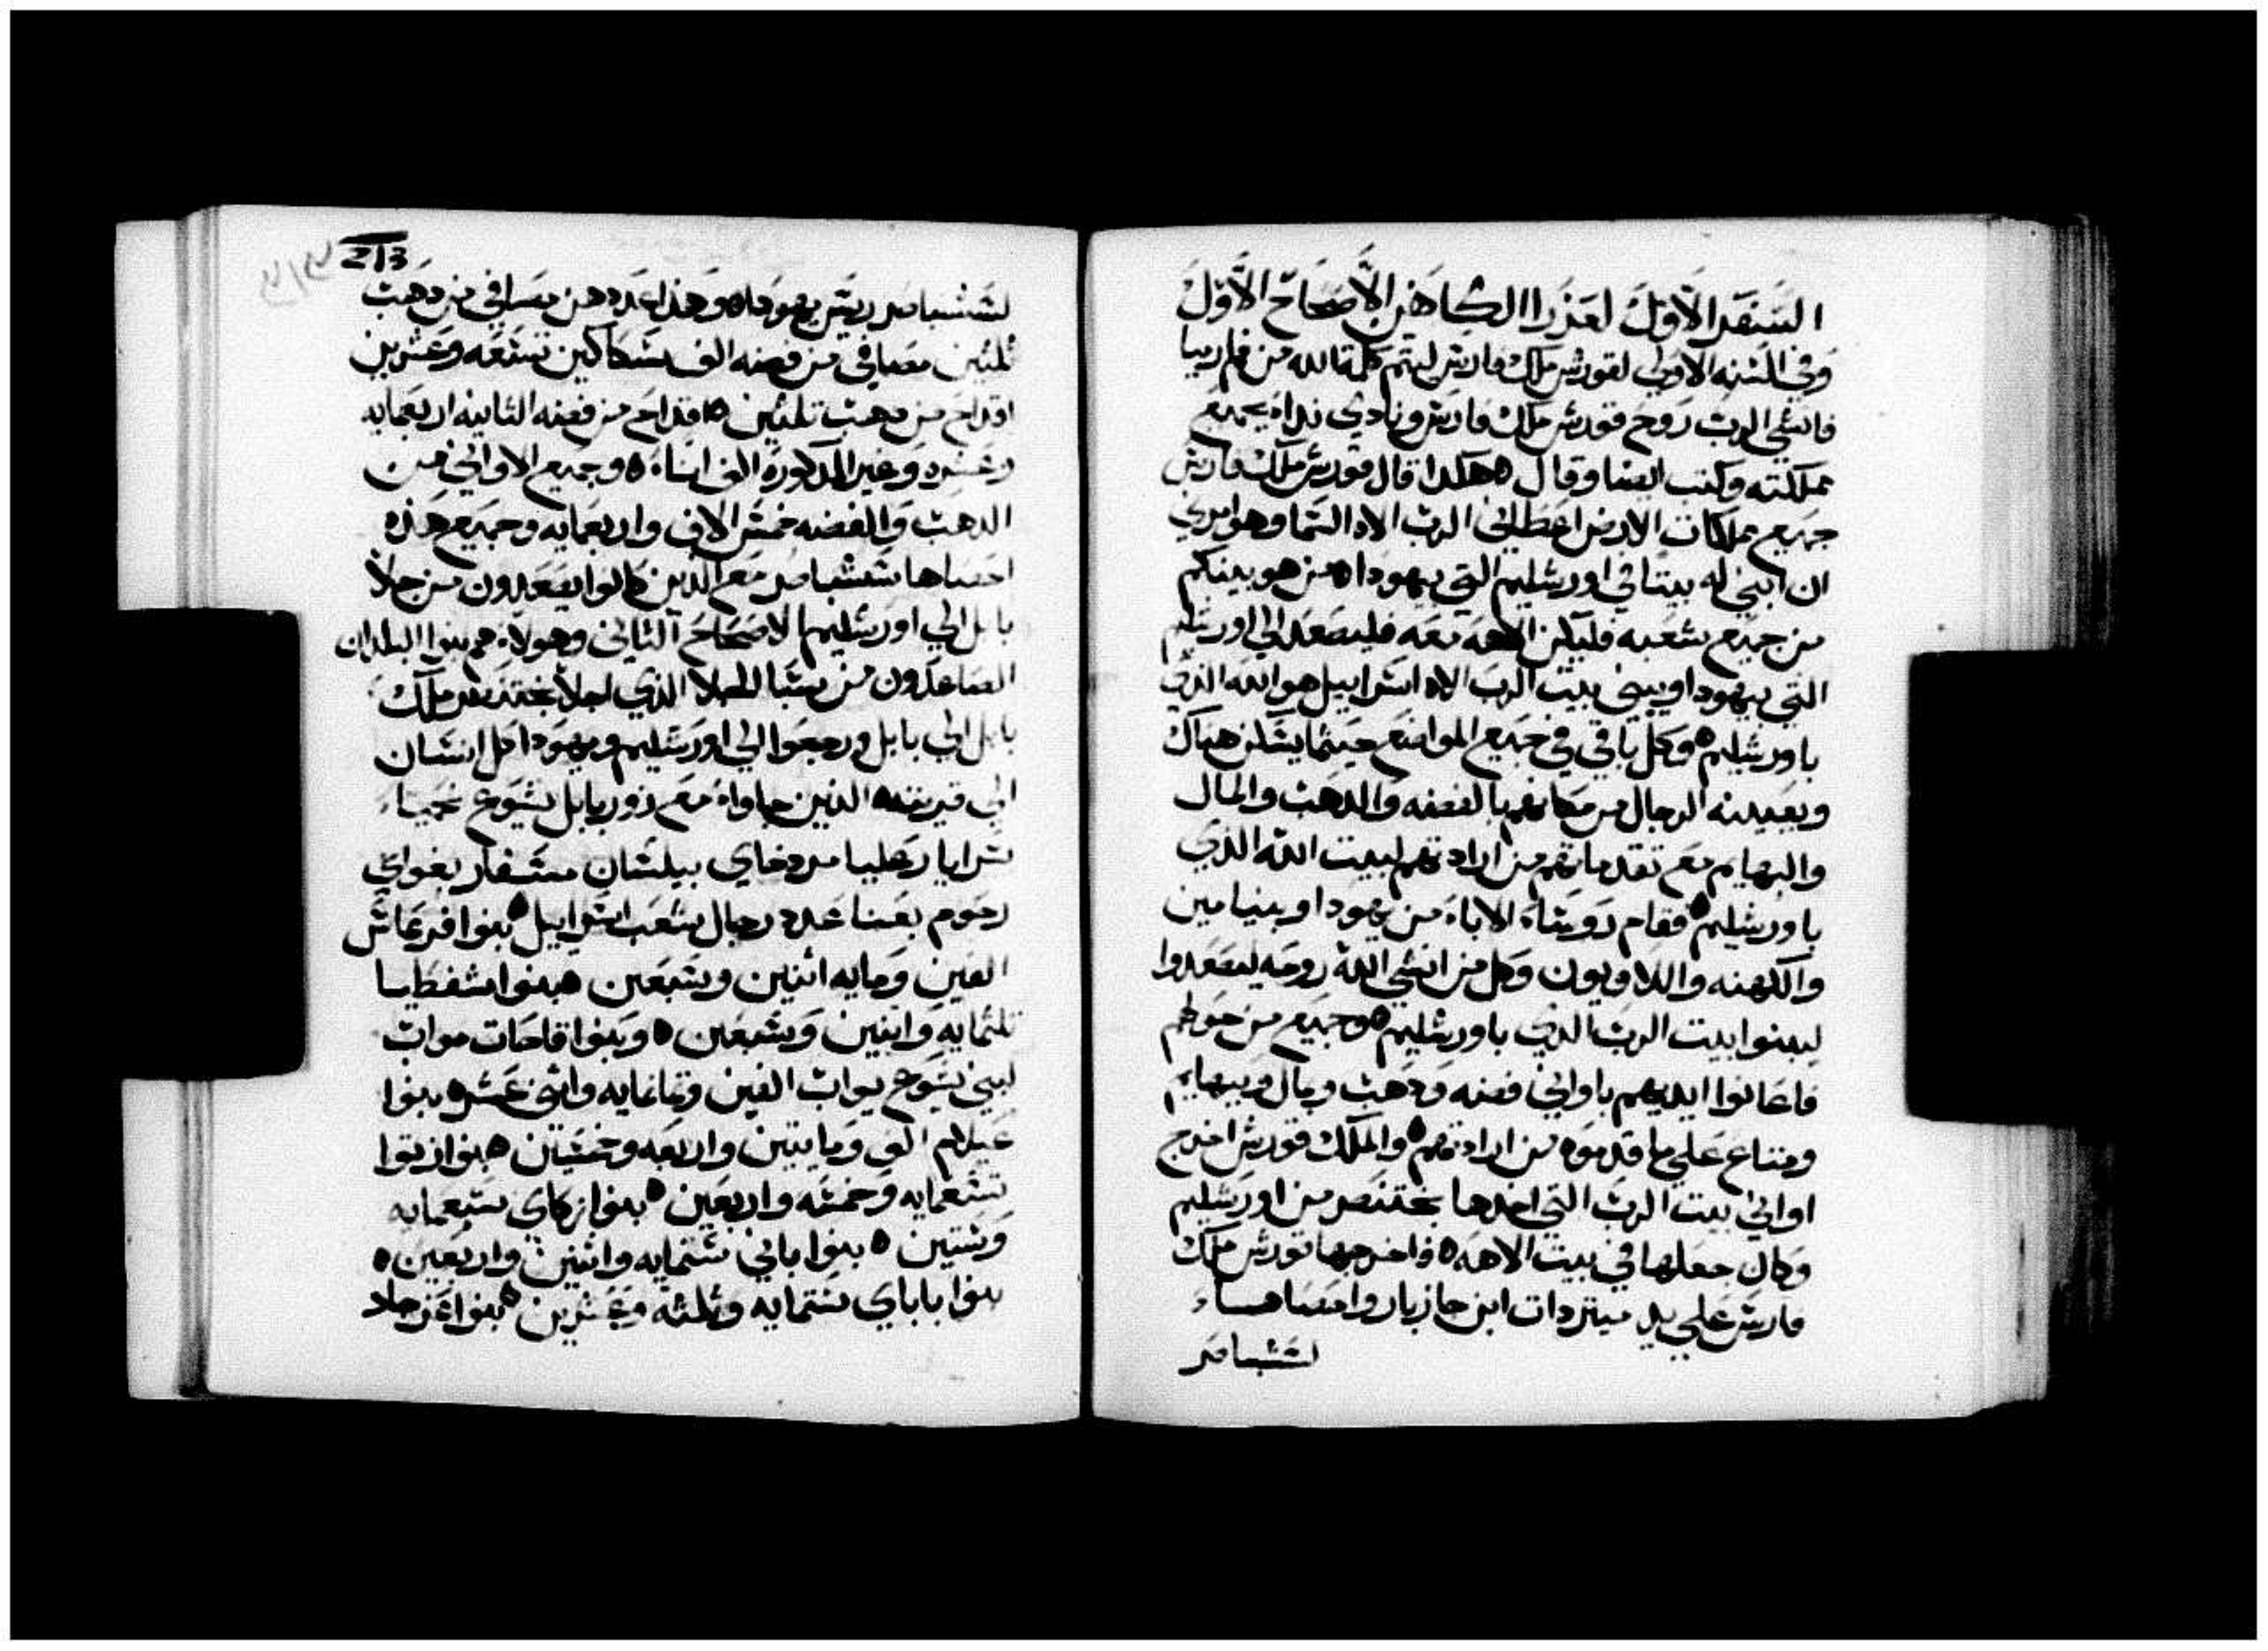 السفر الاول لعزرا الكاهن الاصحاح الاول
وفي السنه الاولي لقورش ملك فارس ليتم كلمة الله من فم ارميا
فانشي الرب روح قورش ملك فارس ونادي نداء بجميع
مملكته وكتب ايضا وقال ه هكدا قال قورش ملك فارس
جميع مملكات الارض اعطاني الرب الاه السما وهو امرني
ان ابني له بيتا في اورشليم التي بيهودا ه من هو بينكم
من جميع شعبه فليكن الاهه معه فليصعد الي اورشليم
التي بيهودا ويبني بيت الرب الاه اسراييل هو الله الذي
باورشليم ه وكل باقي في جميع المواضع حيثما يسكن هناك
ويعينه الرجال من مكانهم بالفضه والدهب والمال
والبهايم مع تقدماتهم من ارادتهم لبيت الله الذي
باورشليم ه فقام روساء الاباء من يهودا وبنيامين
والكهنه واللاويون وكل من انشي الله روحه ليصعدوا
ليبنوا بيت الرب الدي باورشليم ه وجميع من حولهم
فاعانوا ايديهم باواني فضه ودهب ومال وبهايم
ومتاع علي ما قدموه من ارادتهم ه والملك قورش اخرج
اواني بيت الرب التي اخدها بختنصر من اورشليم
وكان جعلها في بيت الاهه ه فاخرجها قورش ملك
فارس علي يد ميتردات ابن جازبار واحصاها
لششباصر
213
لششباصر ريس يهودا ه وهذا عدد هن مصافي من دهب
ثلثين مصافي من فضه الف سكاكين تسعه وعشرين
اقداح من دهب تلثين ه اقداح من فضه الثانيه اربعمايه
وعشره وغير المدكوره الف اناء ه وجميع الاواني من
الدهب والفضه خمس الاف واربعمايه وجميع هذه
احصاها ششباصر مع الذين كانوا يصعدون من جلاء
بابل الي اورشليم الاصحاح الثاني وهولاء هم بنوا البلدان
الصاعدون من سبا الجلا الذي اجلا بختنصر ملك
بابل الي بابل ورجعوا الي اورشليم ويهودا كل انسان
الي قريته ه الذين جاوا مع زوربابل يشوع نحميا
سرايا رعليا مردخاي بيلشان مسفار بغواي
رحوم بعنا عدد رجال شعب اسراييل ه بنوا فرعاش
الفين ومايه اثنين وسبعين ه بنوا شفطيا
تلثمايه واثنين وسبعين ه وبنوا فاحات مواب
لبني يشوع يواب الفين وثمانمايه واثني عشر ه بنوا
عيلام الف ومايتين واربعه وخمسين ه بنوا زتوا
تسعمايه وخمسه واربعين ه بنوا زكاي سبعمايه
وستين ه بنوا باني ستمايه واثنين واربعين ه
بنوا باباي ستمايه وثلثه وعشرين ه بنوا عزجاد